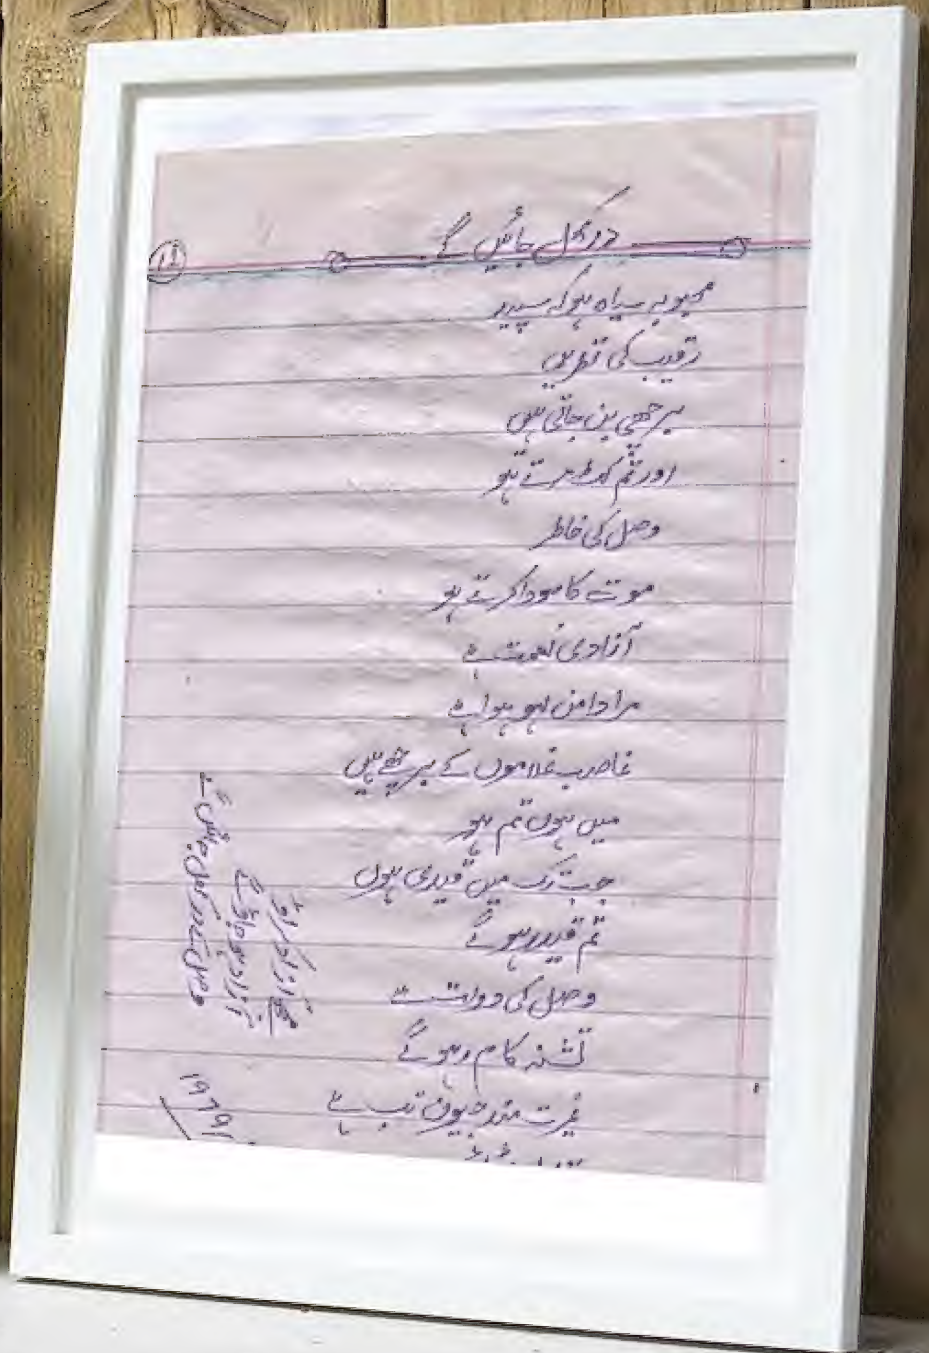 در کھل جائیں گے
۱۱
محبوبہ سیاہ ہو کہ سپید
رقیب کی نظریں
برچھی بن جاتی ہیں
اور تم کٹ مرتے ہو
وصل کی خاطر
موت کا سودا کرتے ہو
آزادی نعمت ہے
مرا دامن لہو ہوا ہے
غاصب غلاموں کے پرچے ہیں
میں ہوں تم ہو
جب تک میں قیدی ہوں
تم قید رہو گے
وصل کی دولت سے
تشنہ کام رہو گے
غیرت مند جیون تب ہے
مجھے آزاد کراؤ
آزاد ہو جاؤ گے
وصل کے در کھل جائیں گے